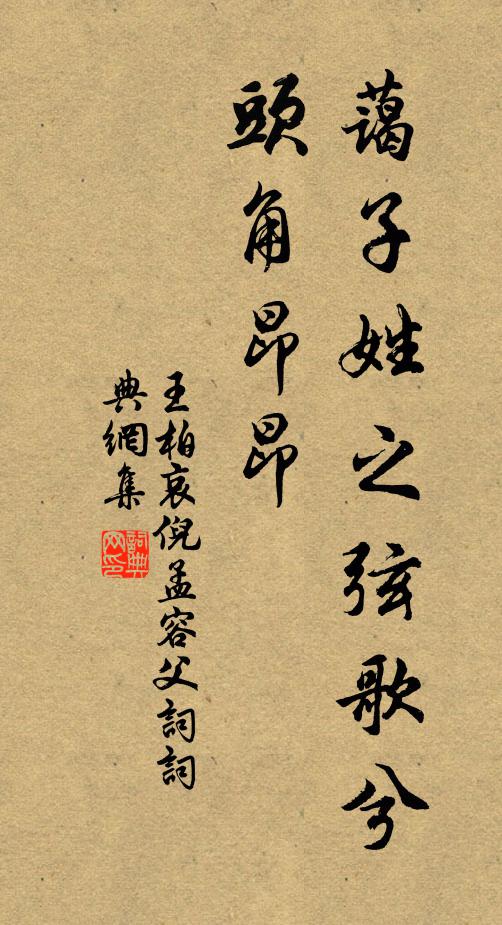 藹子姓之弦歌兮
頭角昂昂
王柏哀倪孟容父詞詞
典網集
詞典
网印